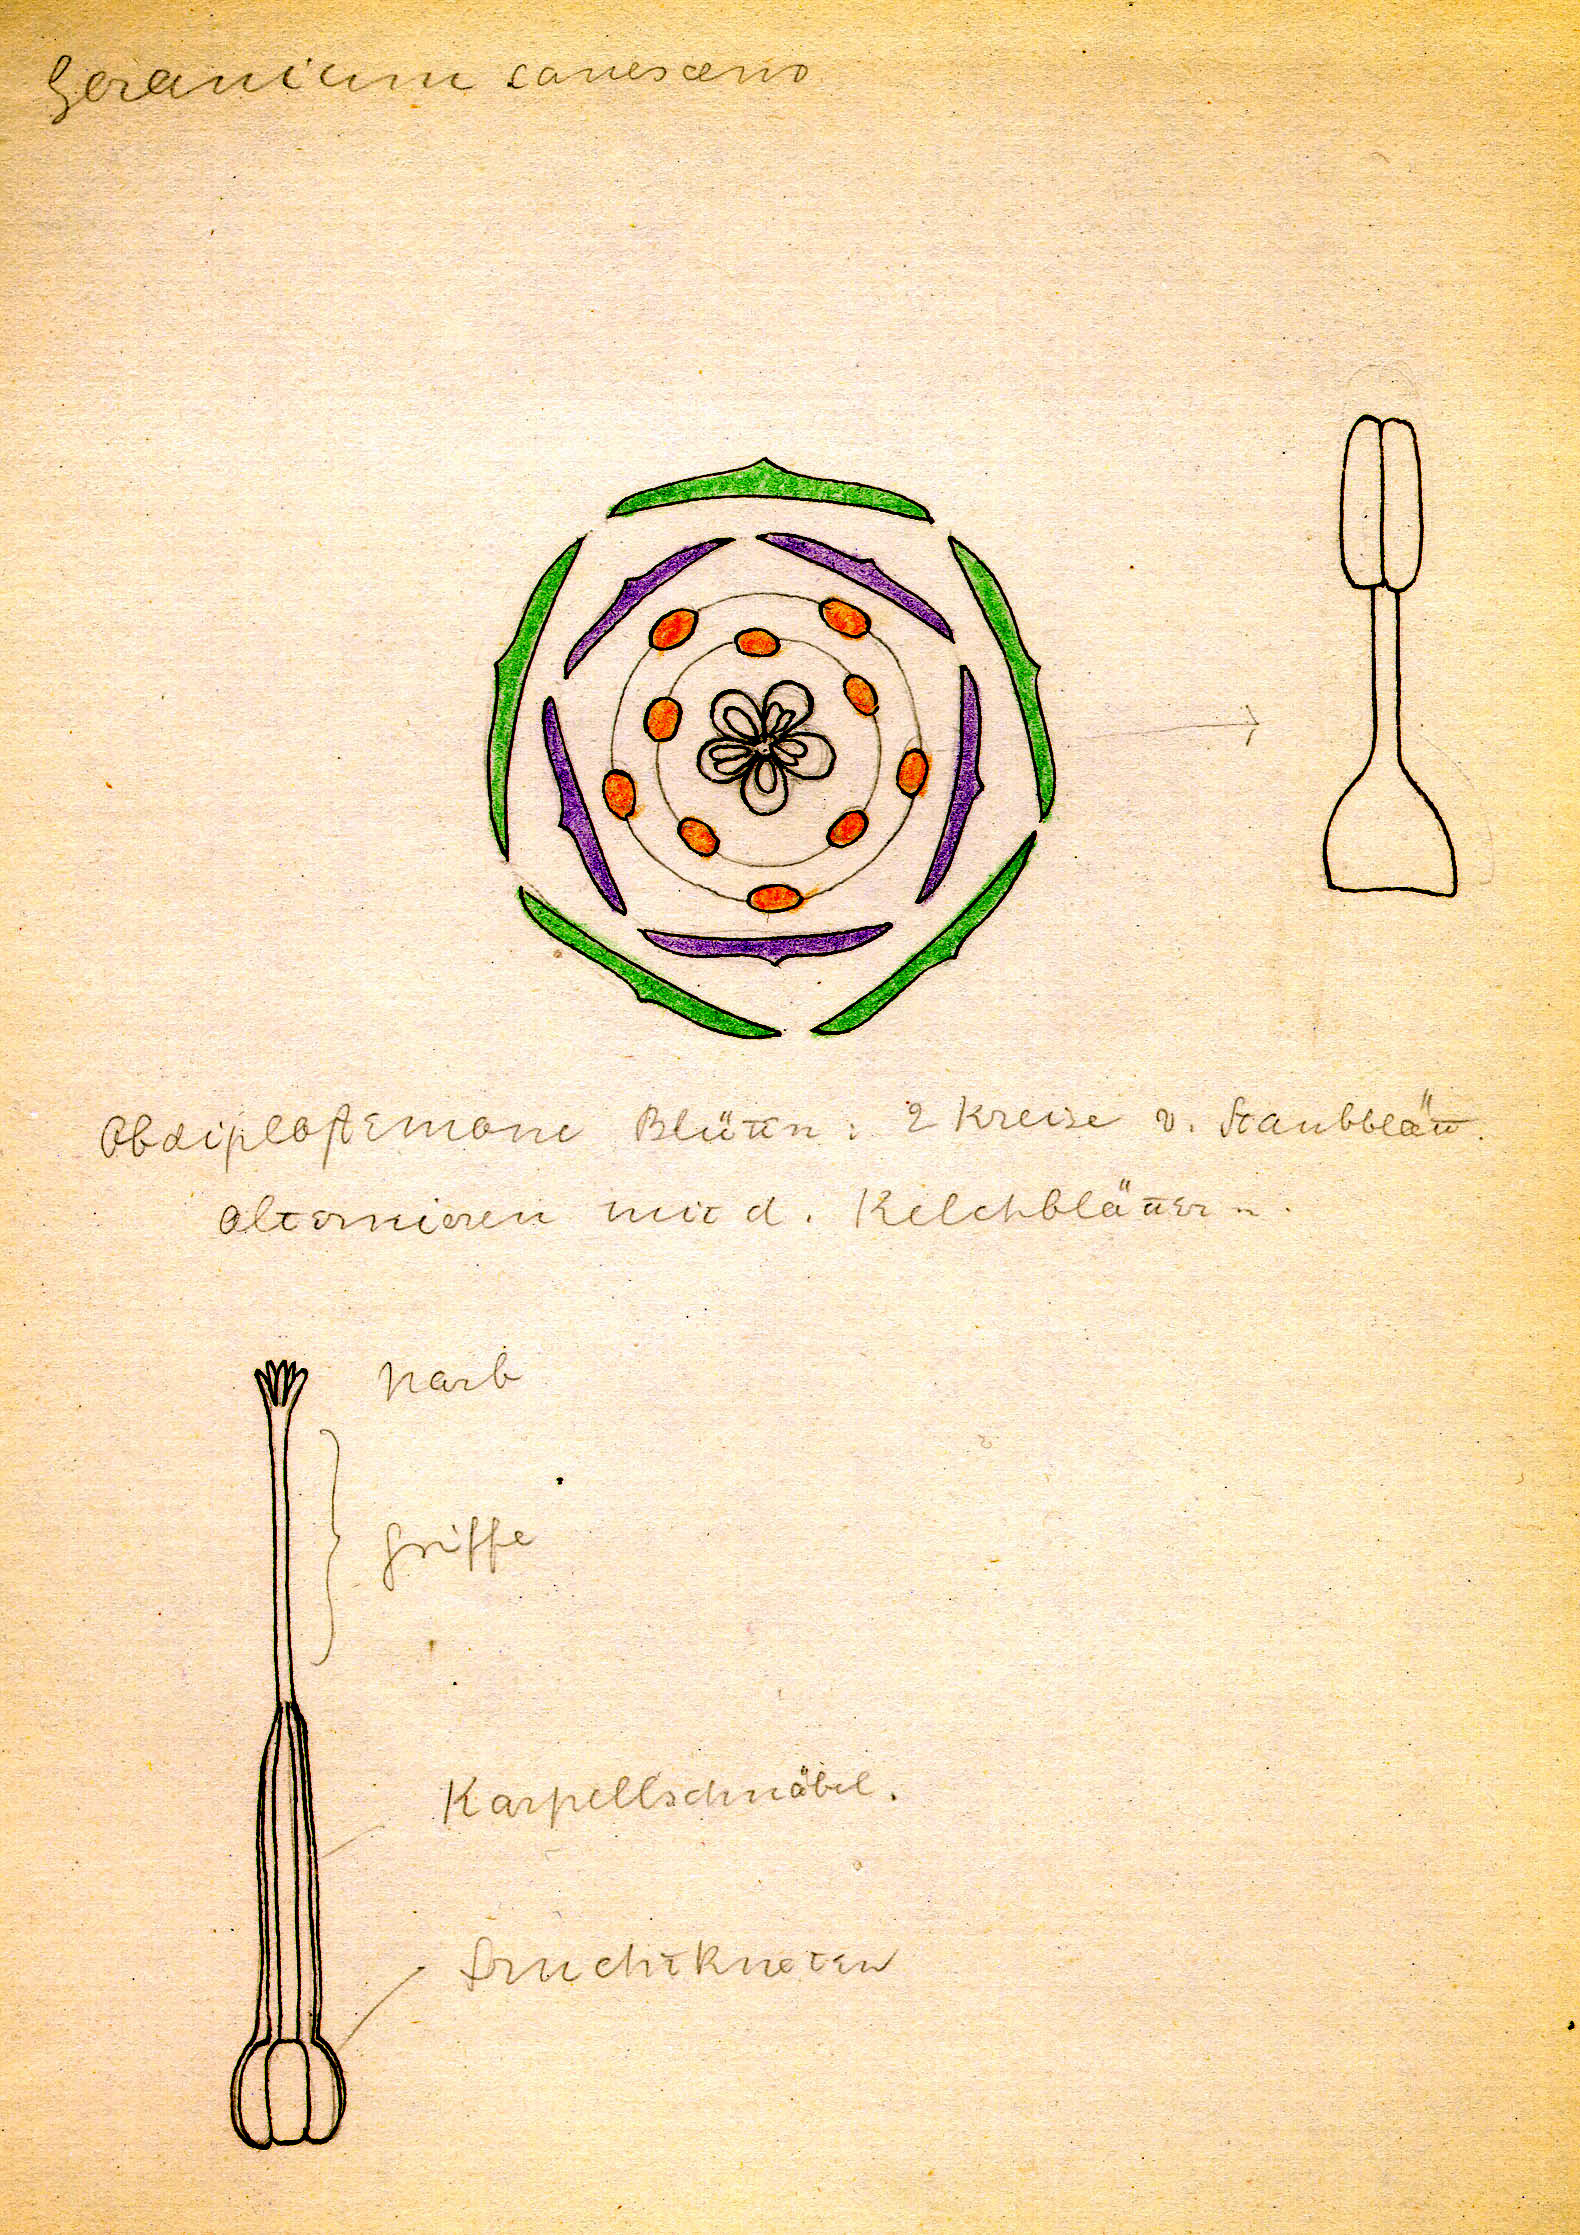 Geranium canescens
Obdiplostemone Blüten: 2 Kreise v. Staubblätt.
alternieren mit d. Kelchblättern.
Narb
Griffe
Karpellschnäbel.
Fruchtknoten